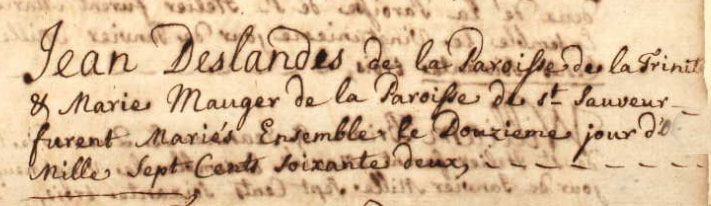 Jean Deslandes de la Paroisse de la Trinit
& Marie Mauger de la Paroisse de St. Sauveur
furent Mariés Ensemble le Douzieme jour d'
Mille Sept Cents Soixante deux,